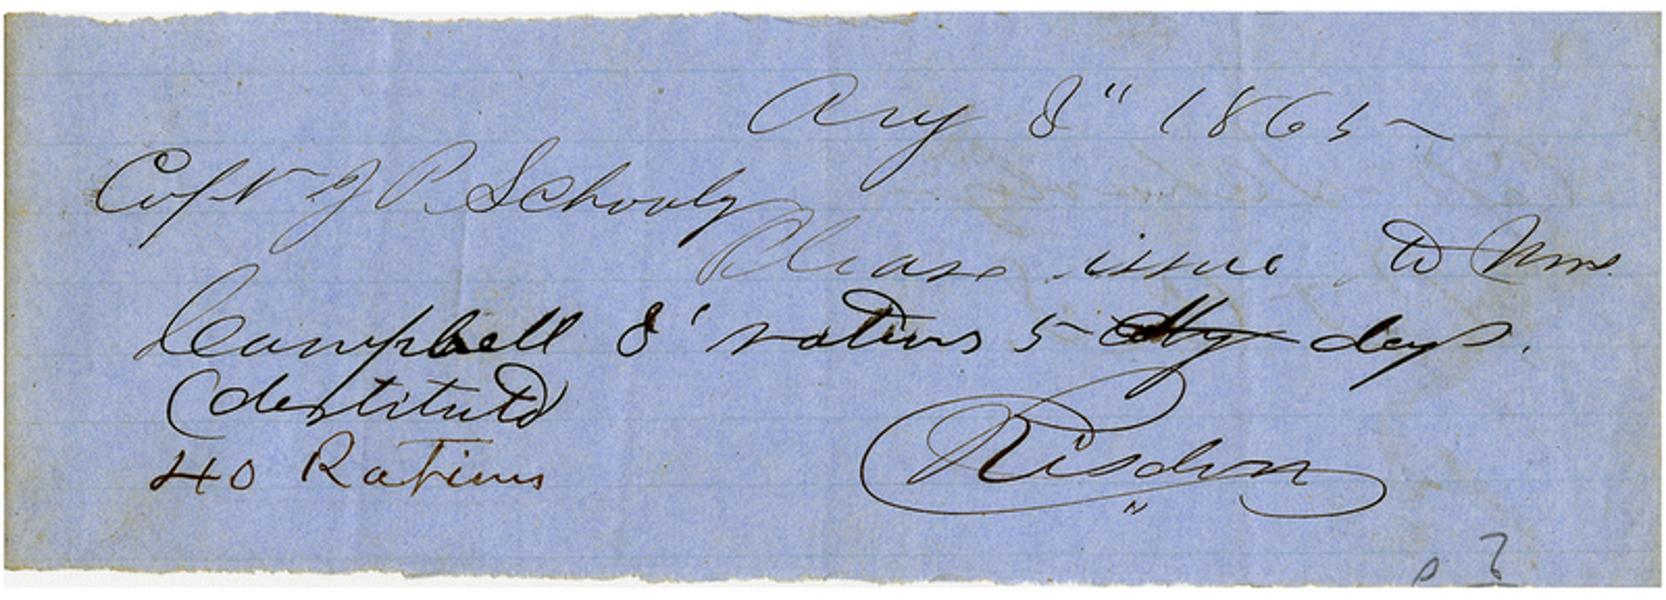 Aug 8" 1865
Capt J P Schooly
Please issue to Mrs
Campbell 8 rations 5 days.
(destitute)
40 Rations
Risdon